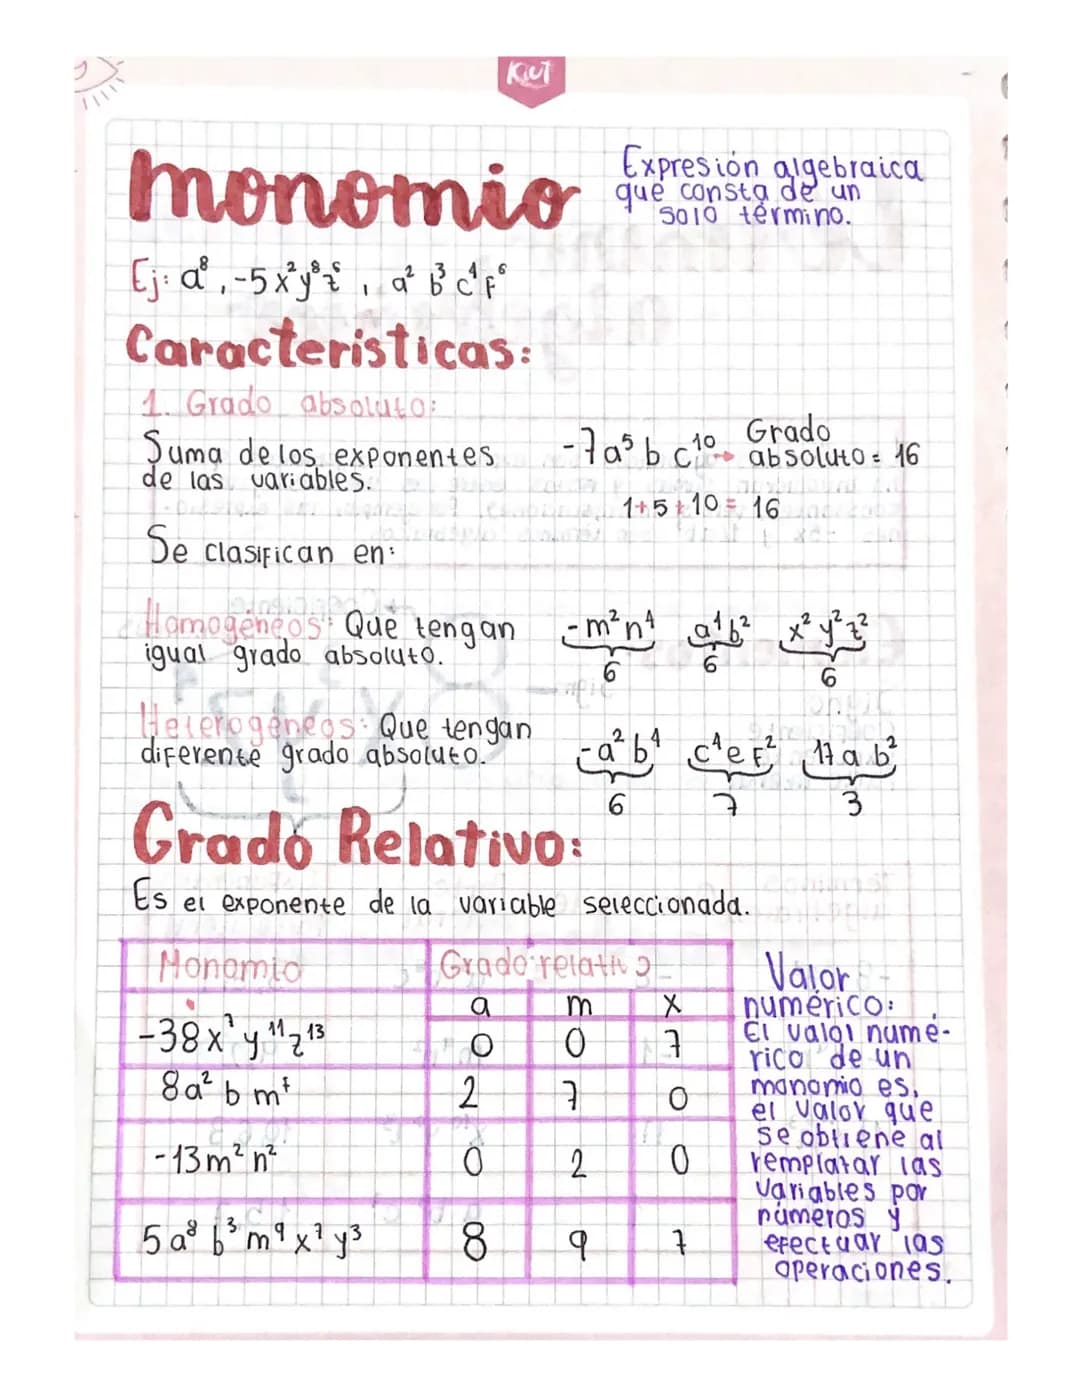 KIUT
monomio
Expresión algebraica
que consta de un
solo término.
Ej: a⁸, -5x²y⁸z⁶, a² b³ c⁴ f⁶
Caracteristicas:
1. Grado absoluto:
Suma de los exponentes
de las variables.
-7a⁵ b c¹⁰ → Grado
absoluto = 16
1+5+10 = 16
Se clasifican en:
Homogéneos: Que tengan
igual grado absoluto.
-m²n⁴ a⁴b² x²y²z²
6 6 6
Heterogéneos: Que tengan
diferente grado absoluto.
-a²b⁴ c⁴ef² 17ab²
6 7 3
Grado Relativo:
Es el exponente de la variable seleccionada.
Monomio Grado relativo
a m x
-38x⁷y¹¹z¹³ 0 0 7
8a² b m⁷ 2 7 0
-13m² n² 0 2 0
5a⁸ b³ m⁹ x⁷ y³ 8 9 7
Valor
numérico:
El valor numé-
rico de un
monomio es,
el valor que
se obtiene al
remplazar las
variables por
números y
efectuar las
operaciones.